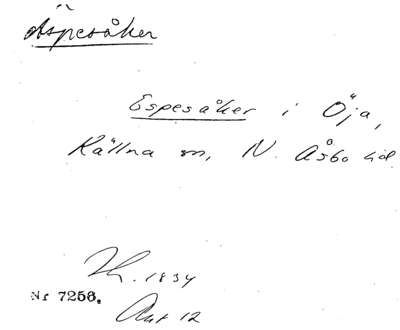 Äspesåker
Espesåker i Öja,
Källna sn, N. Åsbo hd
Kh. 1834
Nr 7256.
Akt 12